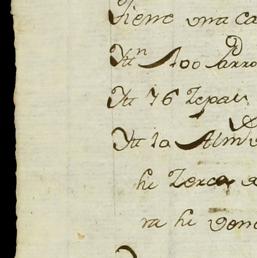 Tiene una ca
Ytn 100 arro
Yt 76 Zepas
Yt la Alm
he Zerca
ra he